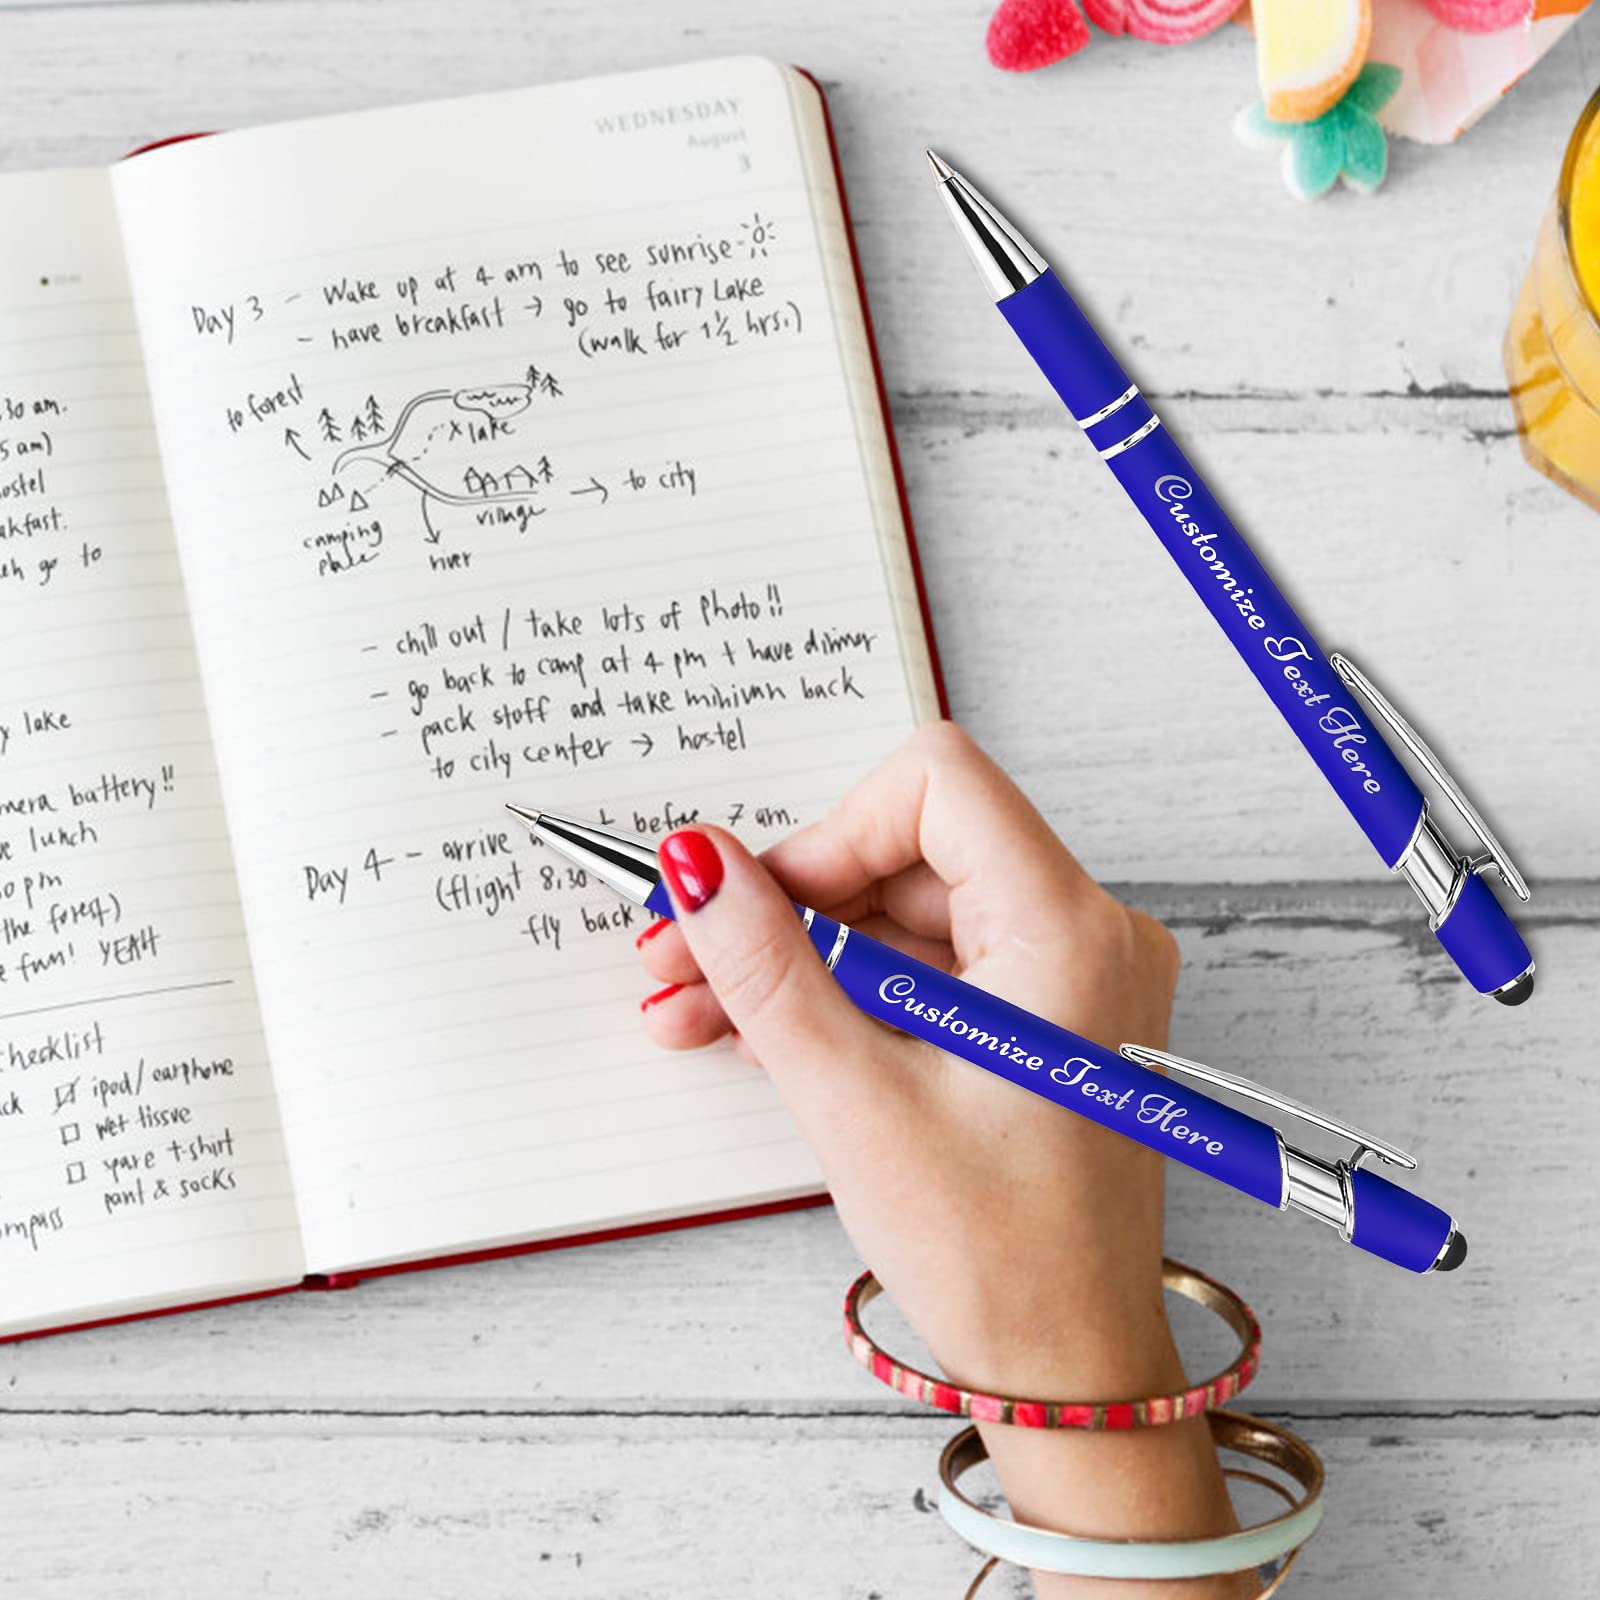 WEDNESDAY
August
3
Day 3 - Wake up at 4 am to see sunrise
- have breakfast → go to fairy Lake
(walk for 1 1/2 hrs.)
to forest
lake
to city
camping
place
village
river
- chill out / take lots of photo!!
- go back to camp at 4 pm + have dinner
- pack stuff and take minivan back
to city center → hostel
Day 4 - arrive before 7 am.
(flight 8,30
fly back
30 am.
5 am)
ostel
akfast.
go to
y lake
mera battery!!
e lunch
0 pm
the forest)
e fun! YEAH
hecklist
ck ☑ ipod / earphone
☐ wet tissue
☐ spare t-shirt
pant & socks
ompass
Customize Text Here
Customize Text Here